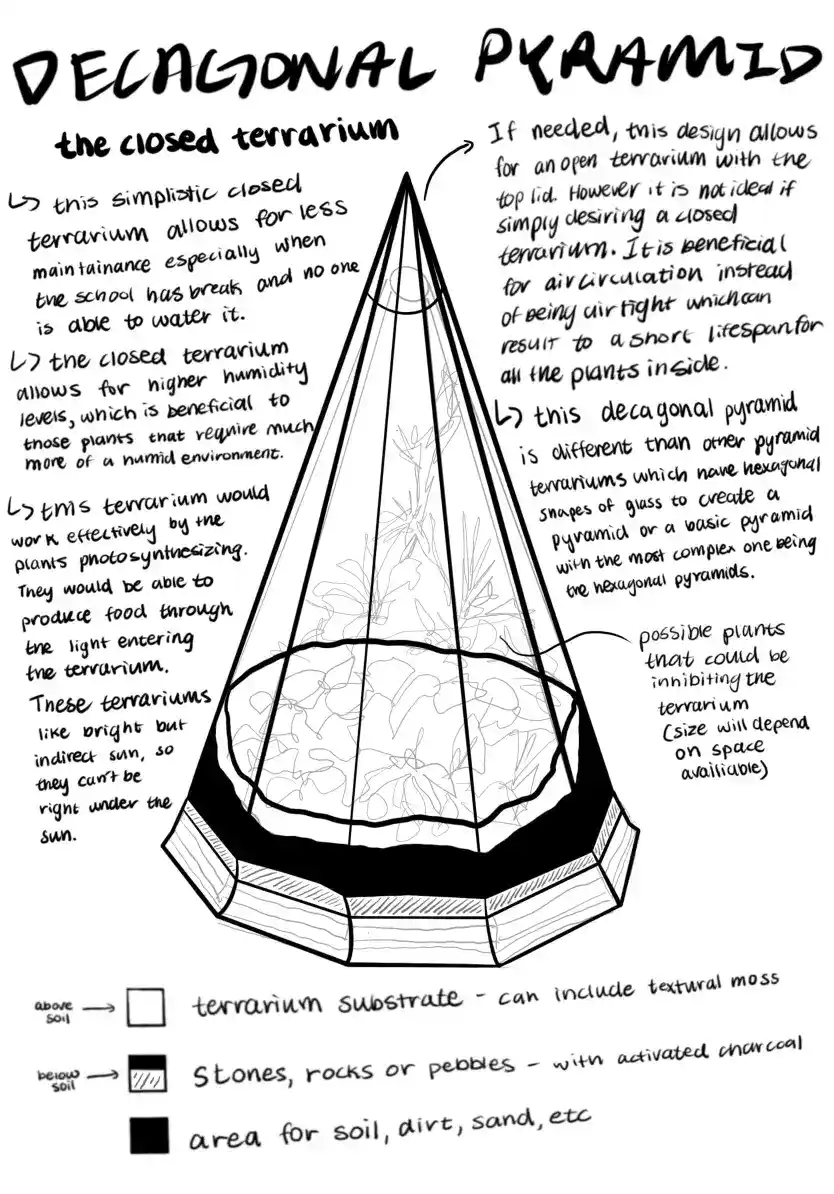 DECAGONAL PYRAMID
the closed terrarium
↳ this simplistic closed
terrarium allows for less
maintainance especially when
the school has break and no one
is able to water it.
↳ the closed terrarium
allows for higher humidity
levels, which is beneficial to
those plants that require much
more of a humid environment.
↳ this terrarium would
work effectively by the
plants photosynthesizing.
They would be able to
produce food through
the light entering
the terrarium.
These terrariums
like bright but
indirect sun, so
they can't be
right under the
sun.
If needed, this design allows
for an open terrarium with the
top lid. However it is not ideal if
simply desiring a closed
terrarium. It is beneficial
for air circulation instead
of being air tight which can
result to a short lifespan for
all the plants inside.
↳ this decagonal pyramid
is different than other pyramid
terrariums which have hexagonal
shapes of glass to create a
pyramid or a basic pyramid
with the most complex one being
the hexagonal pyramids.
possible plants
that could be
inhibiting the
terrarium
(size will depend
on space
availiable)
above
soil → terrarium substrate - can include textural moss
below
soil → Stones, rocks or pebbles - with activated charcoal
area for soil, dirt, sand, etc